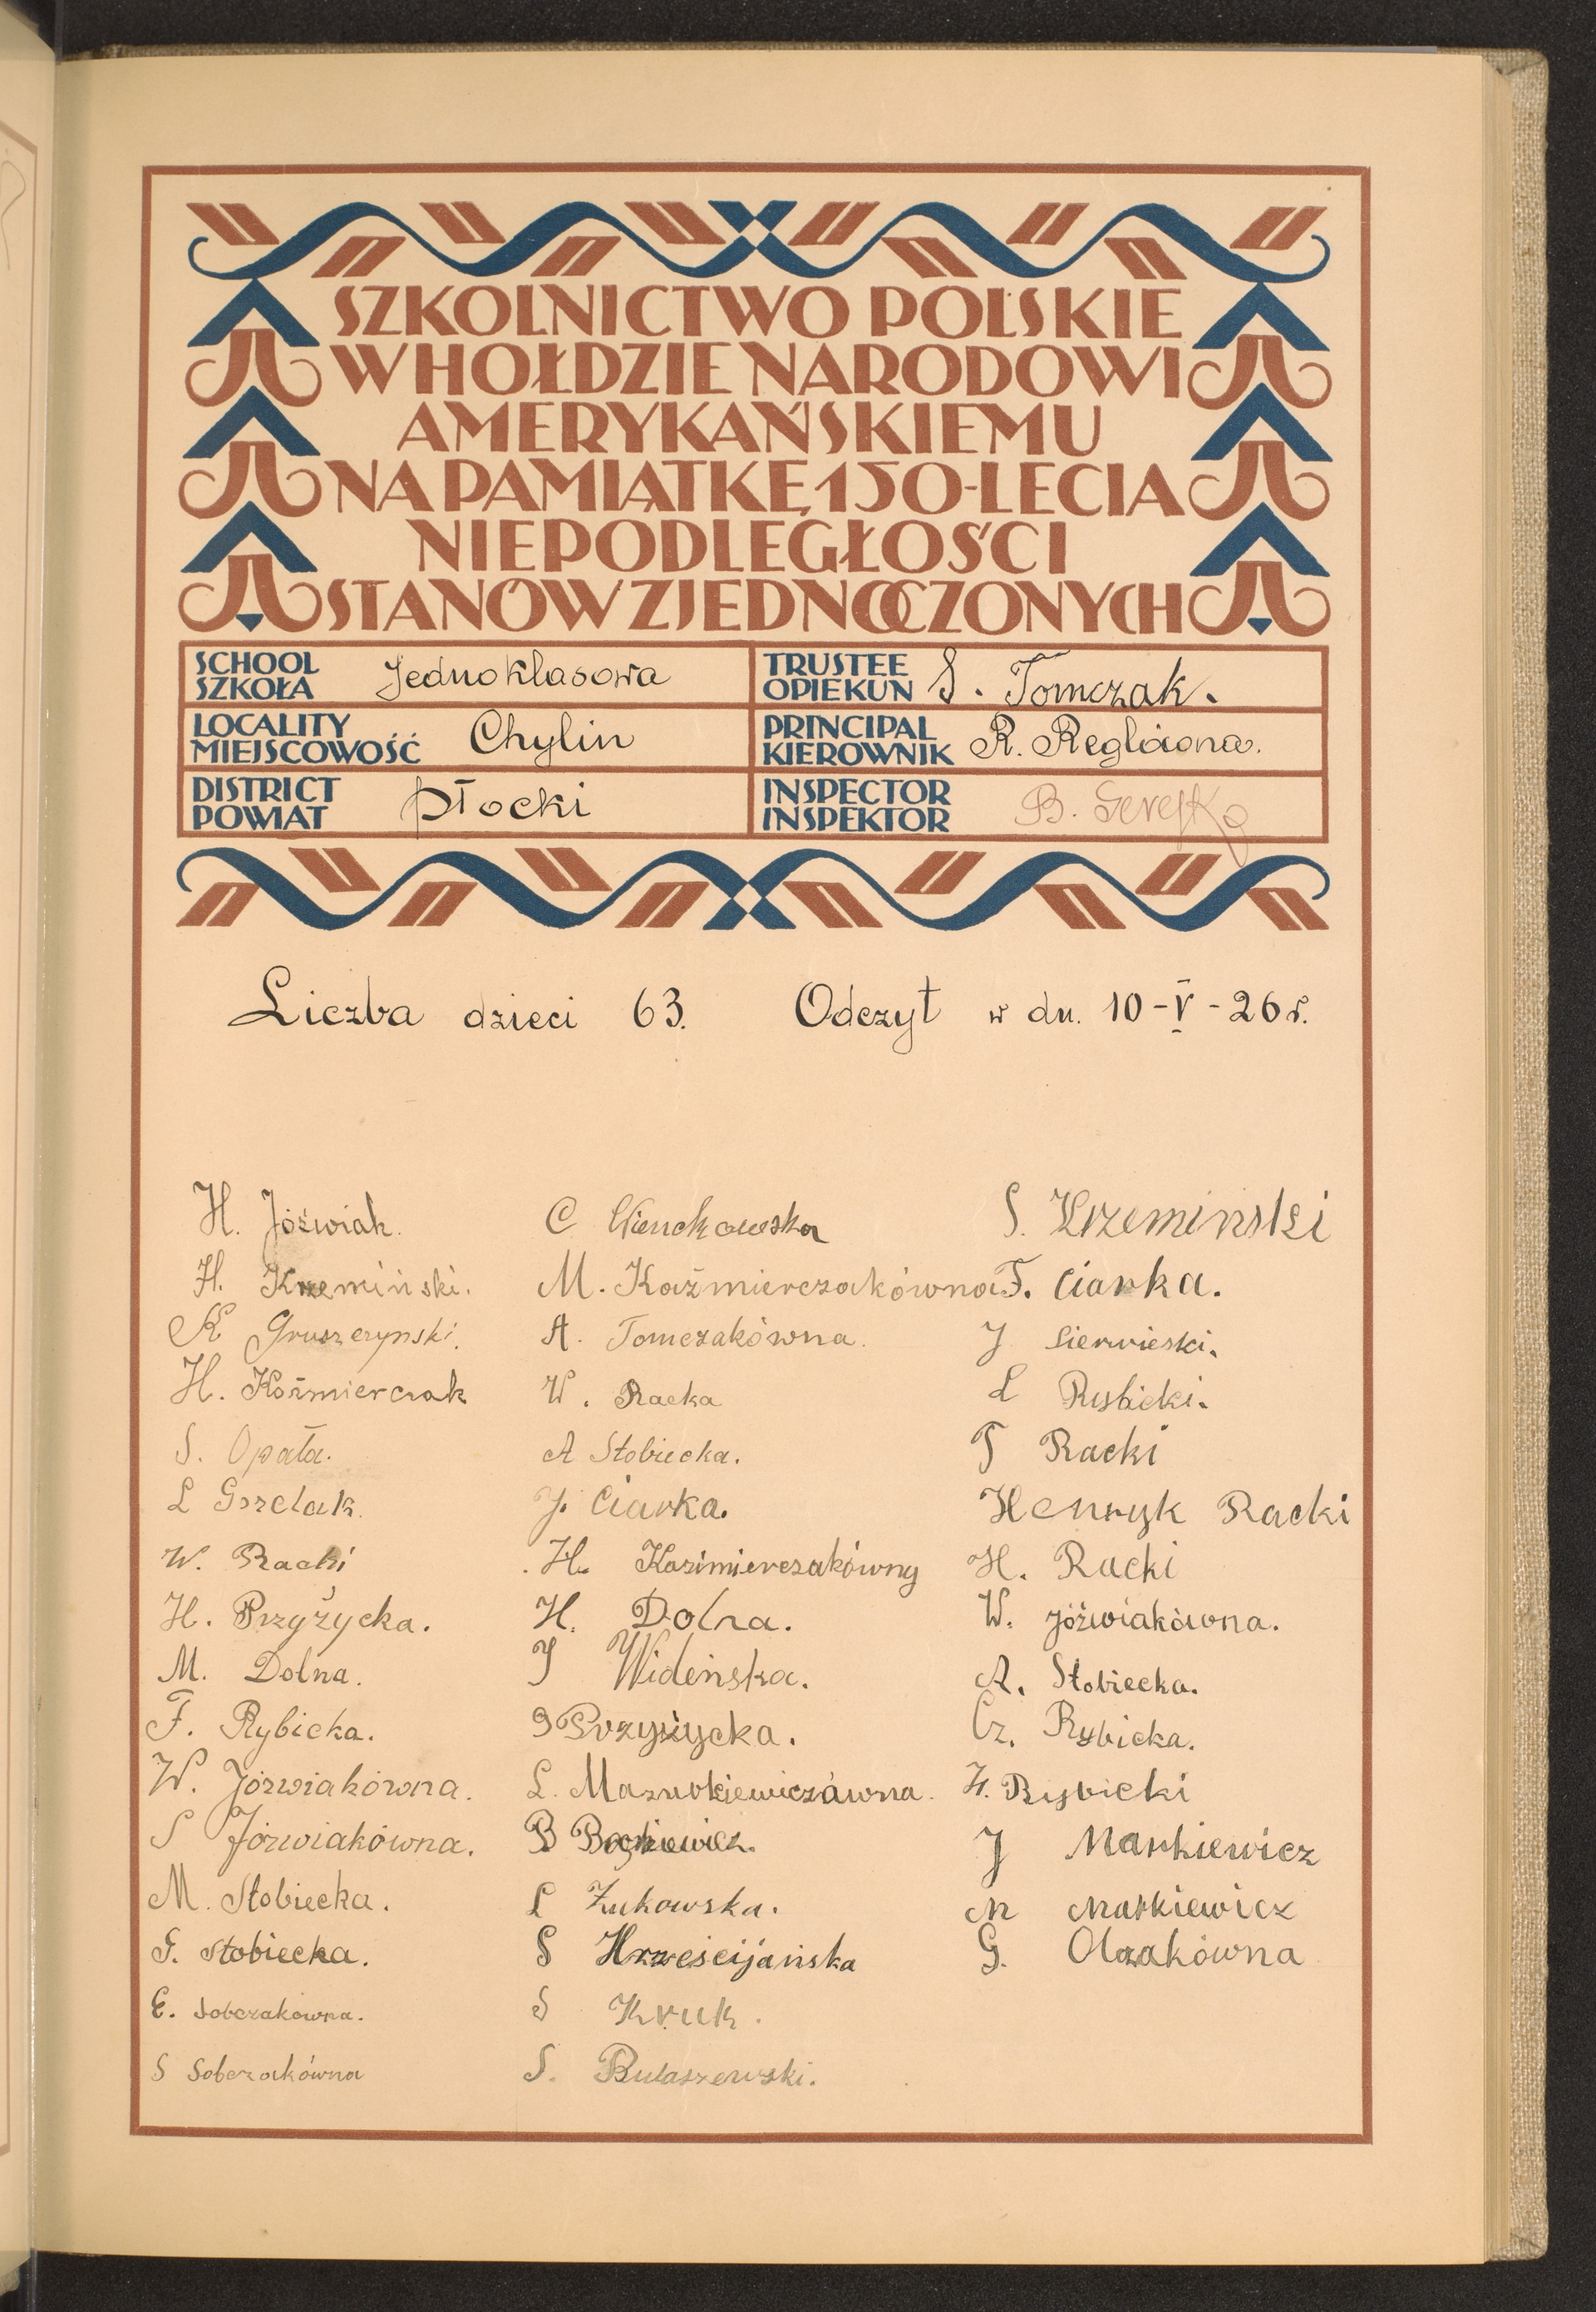 SZKOLNICTWO POLSKIE
W HOŁDZIE NARODOWI
AMERYKAŃSKIEMU
NA PAMIĄTKĘ 150-LECIA
NIEPODLEGŁOŚCI
STANÓW ZJEDNOCZONYCH
SCHOOL
SZKOŁA
Jednoklasowa
TRUSTEE
OPIEKUN
S. Tomczak.
LOCALITY
MIEJSCOWOŚĆ
Chylin
PRINCIPAL
KIEROWNIK
R.
DISTRICT
POWIAT
Płocki
INSPECTOR
INSPEKTOR
B.
Liczba dzieci 63. Odczyt w dn. 10-V-26 r.
H. Jóźwiak.
H. Krzemiński.
K Gruszczynski.
H. Kaźmierczak
S. Opała.
L Gorzelak.
W. Racki
H. Przyżycka.
M. Dolna.
F. Rybicka.
W. Jóźwiakówna.
S Jóźwiakówna.
M. Stobiecka.
G. Stobiecka.
E. Sobczakówna.
S Sobczakówna
C
M. Kaźmierczakówna
A. Tomczakówna.
W. Racka
A Stobiecka.
J. Ciarka.
H. Kazimierczakówny
H. Dolna.
J Wideńska.
J Przyżycka.
L.
B
L Żukowska.
S Hrześcijańska
S Kruk.
S.
S. Krzeminski
F. Ciarka.
J
L Rybicki.
T Racki
Henryk Racki
H. Racki
W. Jóźwiakówna.
A. Stobiecka.
Cz. Rybicka.
H. Rybicki
J Markiewicz
M Markiewicz
G. Olczakówna